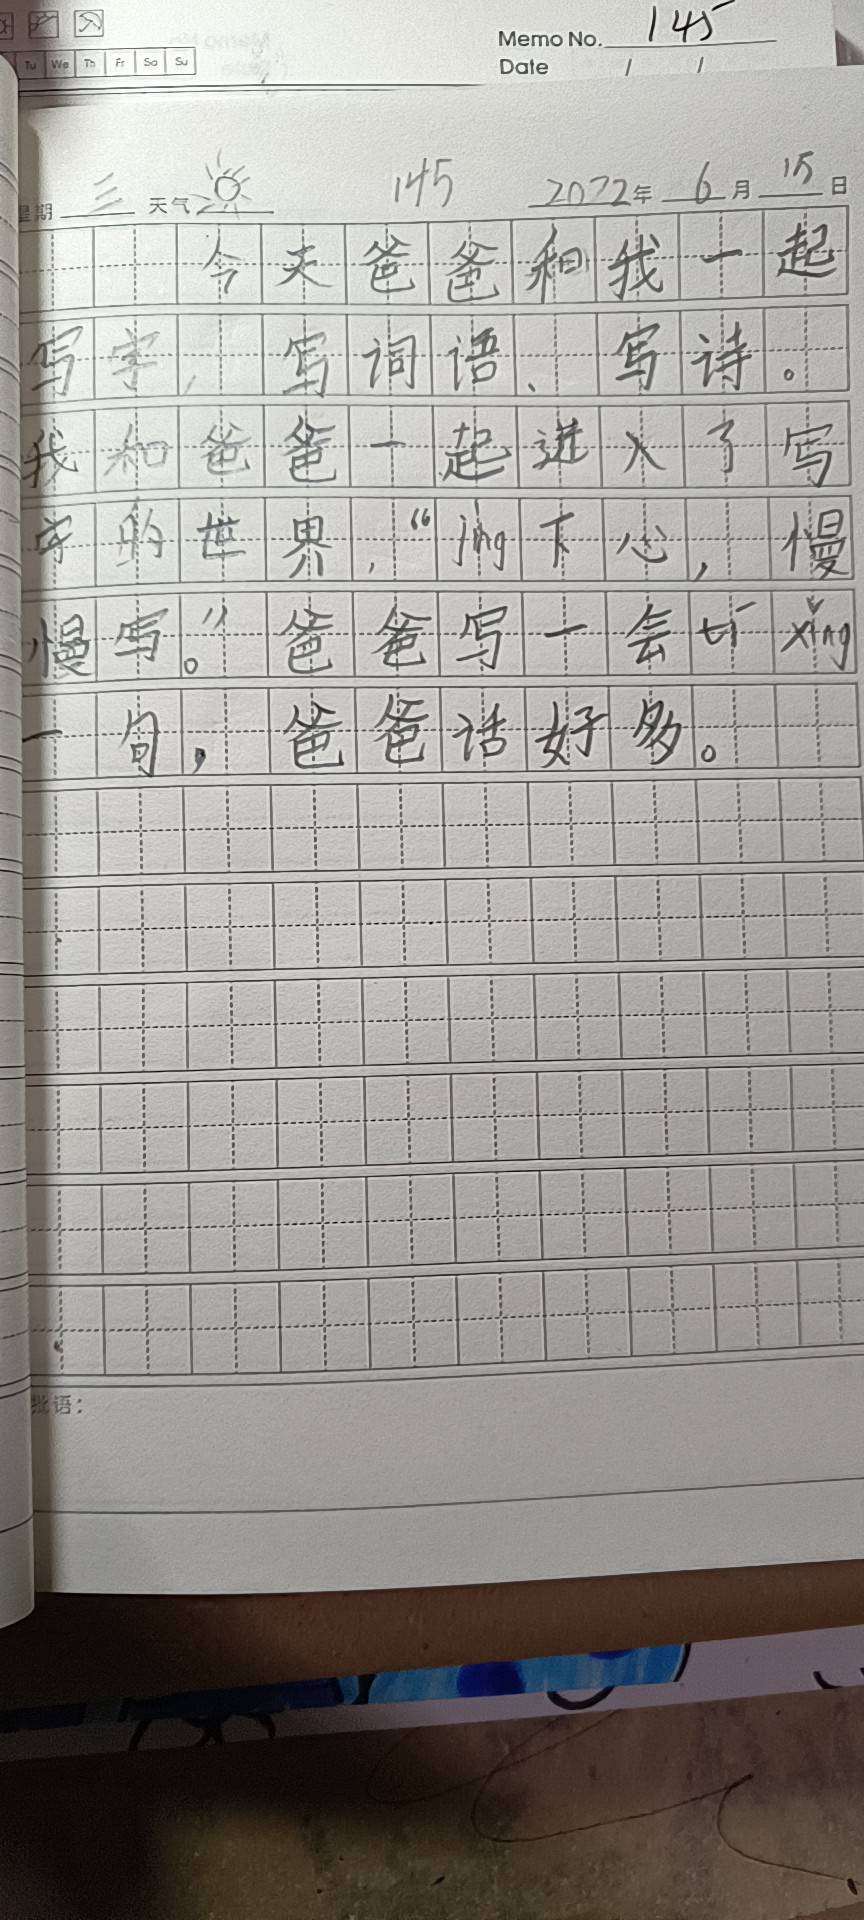 Memo No. 145
Tu We Th Fr Sa Su
Date / /
145
星期 三 天气 2022年 6月 15日
今天爸爸和我一起
写字，写词语、写诗。
我和爸爸一起进入了写
字的世界，“jing下心，慢
慢写。”爸爸写一会tí xǐng
一句，爸爸话好多。
批语：